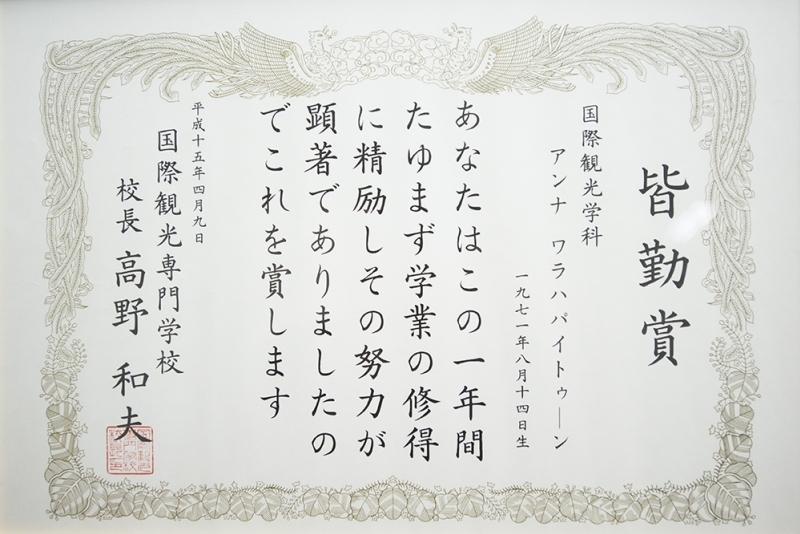 皆勤賞
国際観光学科
アンナ ワラハパイトゥーン
一九七一年八月十四日生
あなたはこの一年間
たゆまず学業の修得
に精励しその努力が
顕著でありましたの
でこれを賞します
平成十五年四月九日
国際観光専門学校
校長 高野 和夫